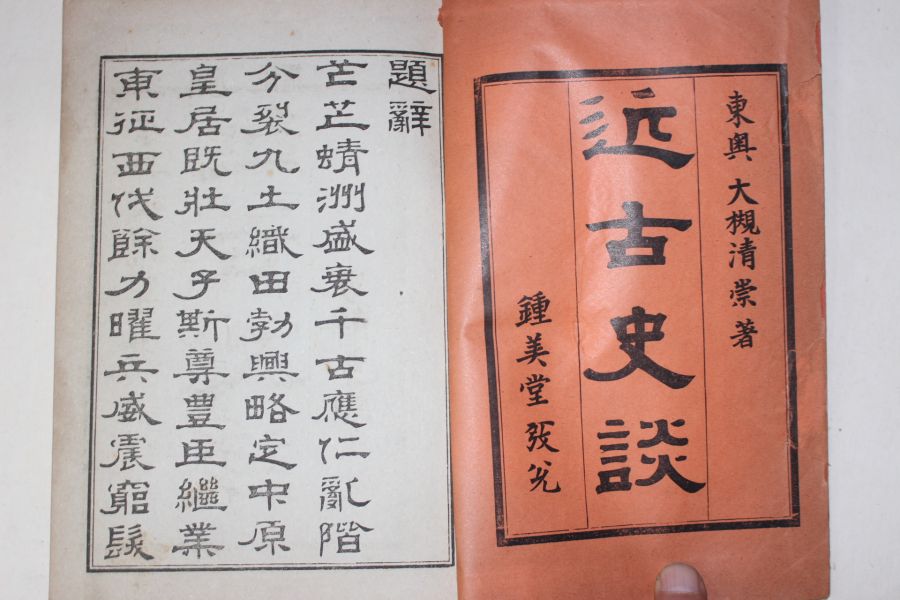 東奥 大槻清崇著
近古史談
鍾美堂 發兌
題辭
芒芒蜻洲盛衰千古應仁亂階
分裂九土織田勃興略定中原
皇居既壯天子斯尊豊臣繼業
東征西伐餘力曜兵威震窮髮